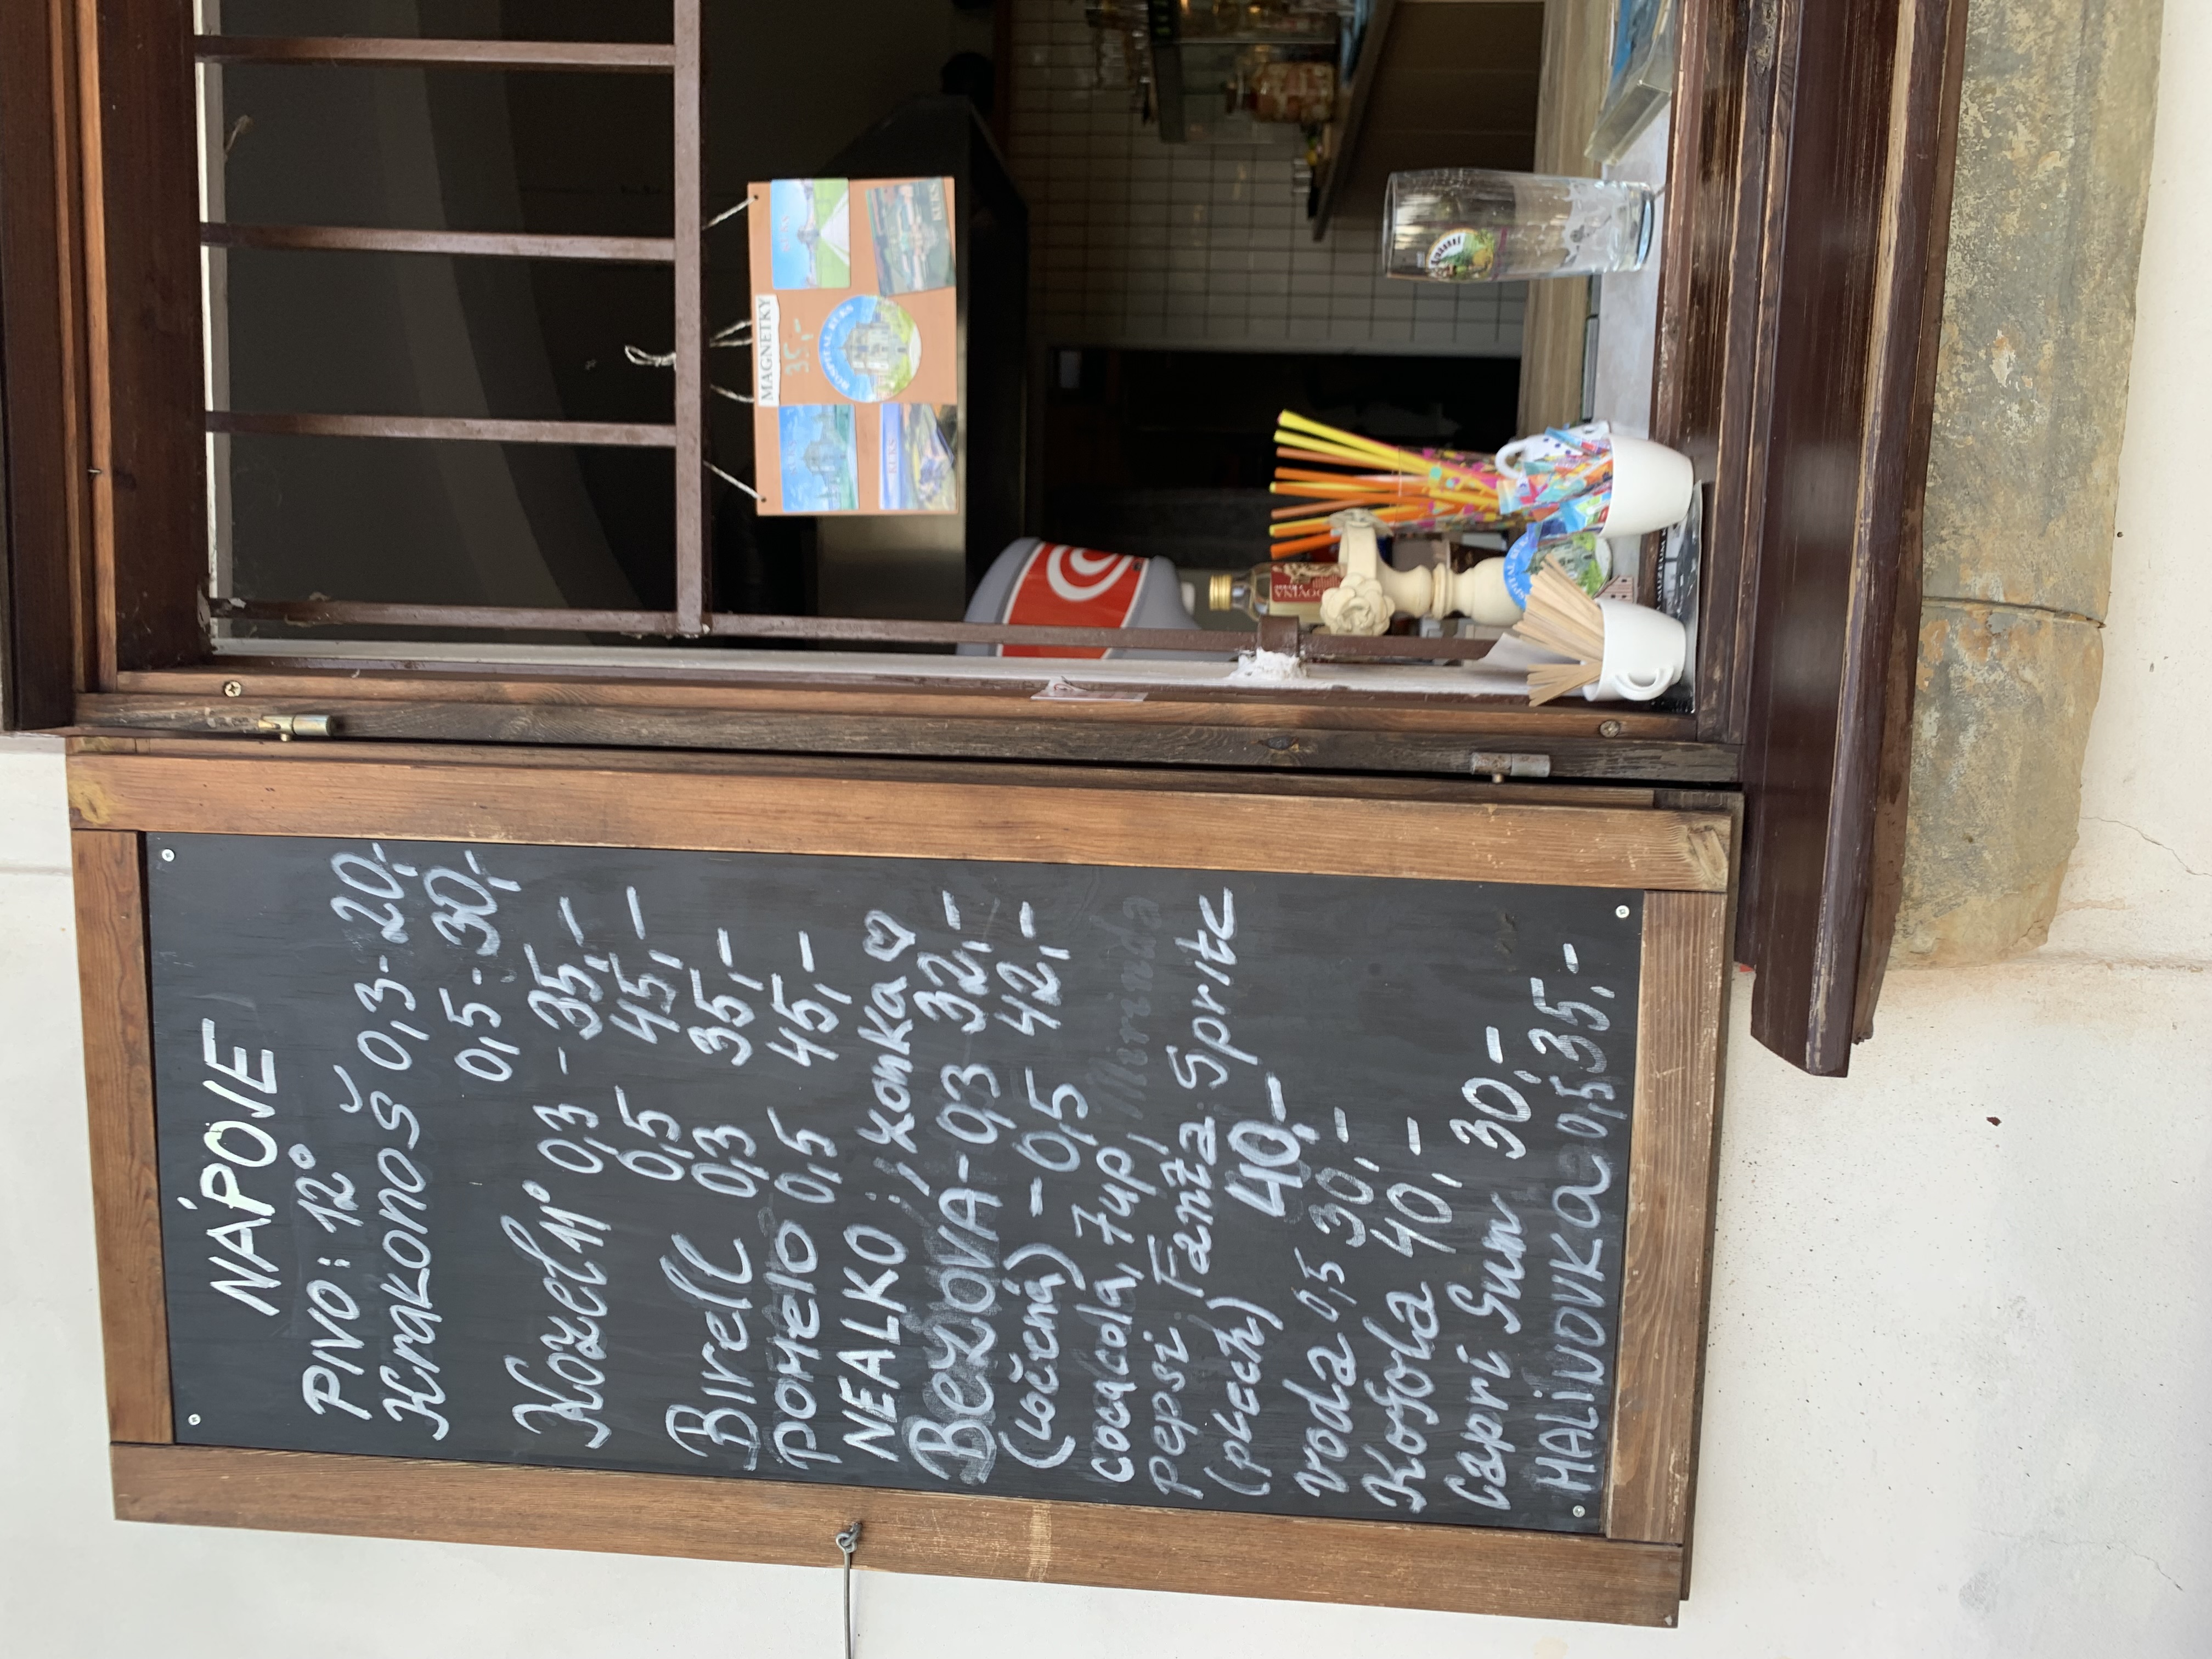 NÁPOJE
PIVO: 12°
Krakonoš 0,3-20,-
0,5-30,-
Kozel 11° 0,3 - 35,-
0,5 45,-
Birell 0,3 35,-
POMELO 0,5 45,-
NEALKO: ;xonka♡
BEZOVA-0,3 32,-
(točená) - 0,5 42,-
cocacola, 7up, Mirinda
pepsi Fanta Sprite
(plech) 40,-
voda 0,5 30,-
Kofola 40,-
Capri Sun 30,-
MALINOVKA 0,5 35,-
MAGNETKY
35,-
KUKS
HOSPITAL KUKS
KUKS